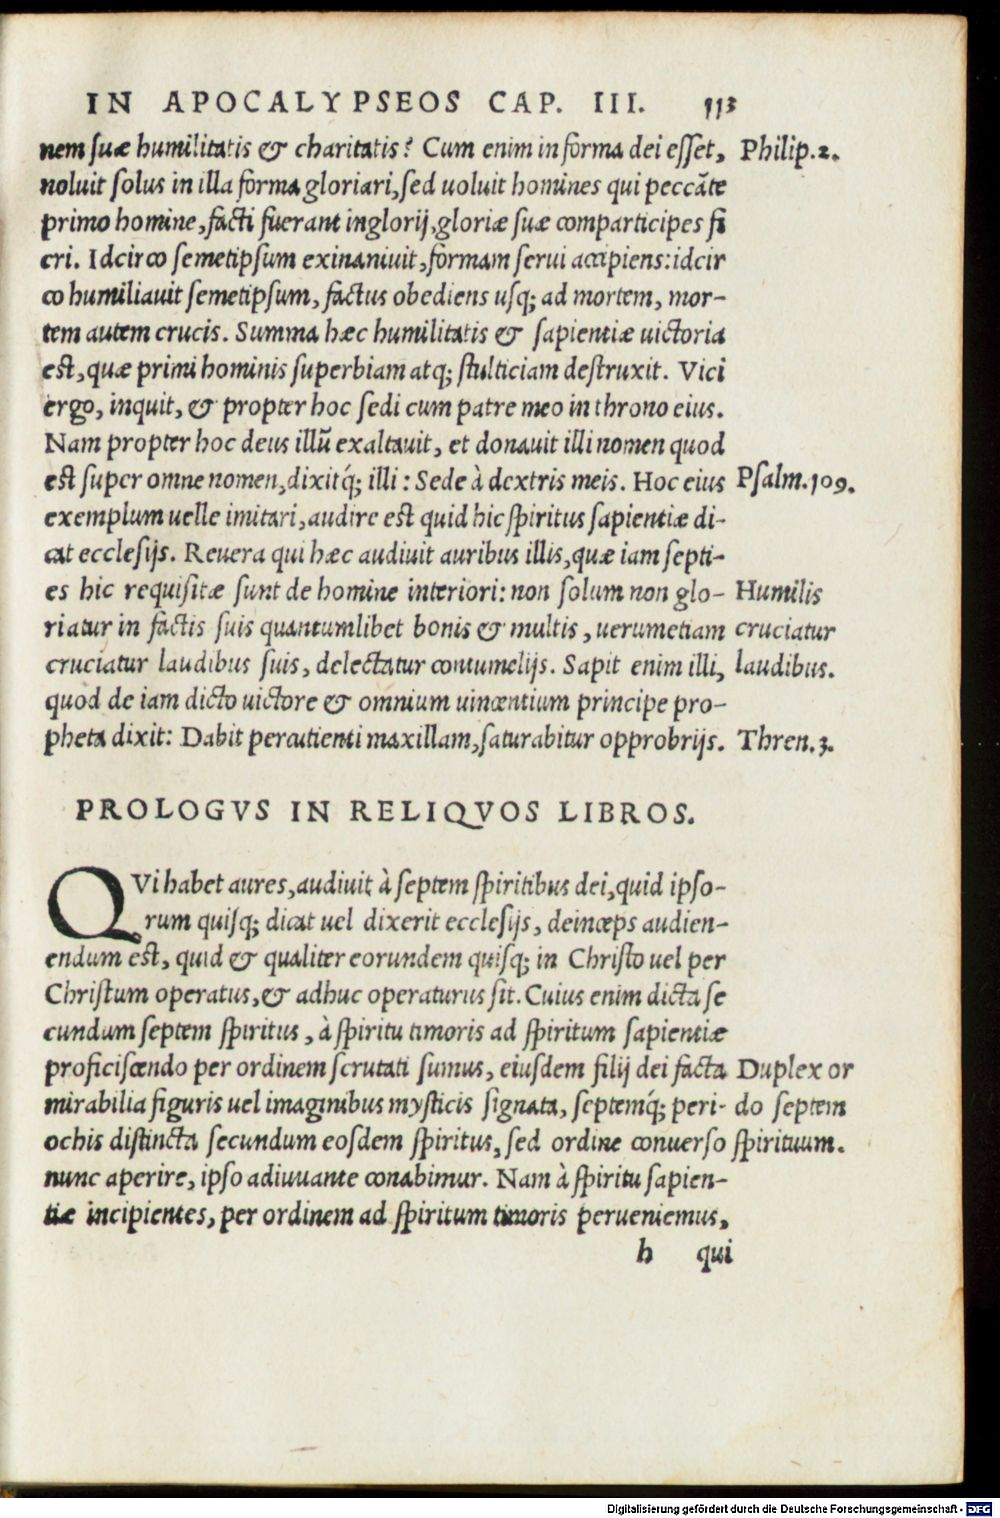 IN APOCALYPSEOS CAP. III. 113
nem suæ humilitatis & charitatis? Cum enim in forma dei esset, Philip.2.
noluit solus in illa forma gloriari, sed uoluit homines qui peccāte
primo homine, facti fuerant inglorij, gloriæ suæ comparticipes fi
eri. Idcirco semetipsum exinaniuit, formam serui accipiens: idcir
co humiliauit semetipsum, factus obediens usq; ad mortem, mor-
tem autem crucis. Summa hæc humilitatis & sapientiæ uictoria
est, quæ primi hominis superbiam atq; stulticiam destruxit. Vici
ergo, inquit, & propter hoc sedi cum patre meo in throno eius.
Nam propter hoc deus illū exaltauit, et donauit illi nomen quod
est super omne nomen, dixitq́; illi: Sede à dextris meis. Hoc eius Psalm.109.
exemplum uelle imitari, audire est quid hic spiritus sapientiæ di-
cat ecclesijs. Reuera qui hæc audiuit auribus illis, quæ iam septi-
es hic requisitæ sunt de homine interiori: non solum non glo- Humilis
riatur in factis suis quantumlibet bonis & multis, uerumetiam cruciatur
cruciatur laudibus suis, delectatur contumelijs. Sapit enim illi, laudibus.
quod de iam dicto uictore & omnium uincentium principe pro-
pheta dixit: Dabit percutienti maxillam, saturabitur opprobrijs. Thren.3.
PROLOGVS IN RELIQVOS LIBROS.
QVi habet aures, audiuit à septem spiritibus dei, quid ipso-
rum quisq; dicat uel dixerit ecclesijs, deinceps audien-
endum est, quid & qualiter eorundem quisq; in Christo uel per
Christum operatus, & adhuc operaturus sit. Cuius enim dicta se
cundum septem spiritus, à spiritu timoris ad spiritum sapientiæ
proficiscendo per ordinem scrutati sumus, eiusdem filij dei facta Duplex or
mirabilia figuris uel imaginibus mysticis signata, septemq́; peri- do septem
ochis distincta secundum eosdem spiritus, sed ordine conuerso spirituum.
nunc aperire, ipso adiuuante conabimur. Nam à spiritu sapien-
tiæ incipientes, per ordinem ad spiritum timoris perueniemus,
h qui
Digitalisierung gefördert durch die Deutsche Forschungsgemeinschaft - DFG